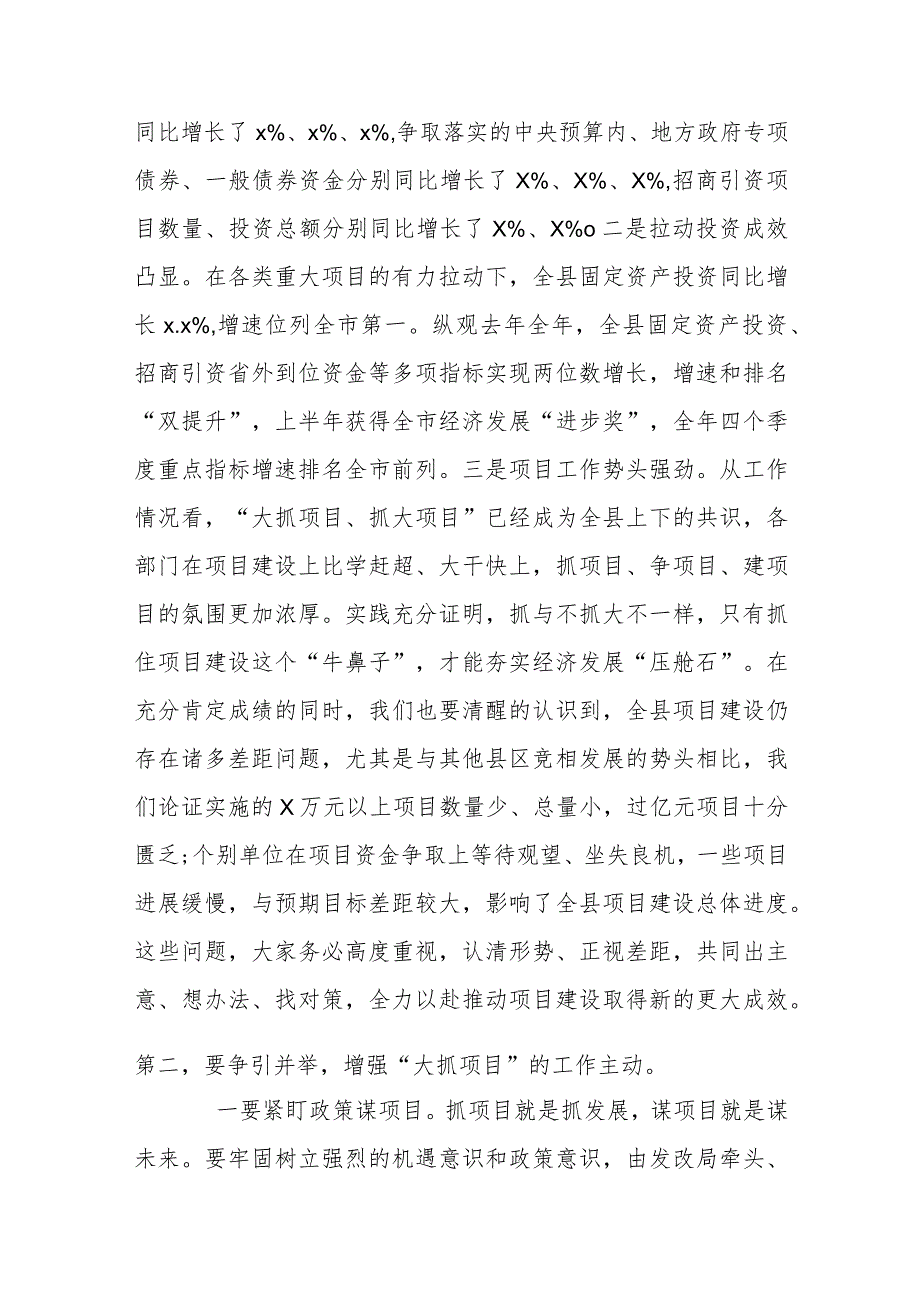 同比增长了 x%、x%、x%,争取落实的中央预算内、地方政府专项
债券、一般债券资金分别同比增长了 X%、X%、X%,招商引资项
目数量、投资总额分别同比增长了 X%、X%o 二是拉动投资成效
凸显。在各类重大项目的有力拉动下，全县固定资产投资同比增
长 x.x%,增速位列全市第一。纵观去年全年，全县固定资产投资、
招商引资省外到位资金等多项指标实现两位数增长，增速和排名
“双提升”，上半年获得全市经济发展“进步奖”，全年四个季
度重点指标增速排名全市前列。三是项目工作势头强劲。从工作
情况看，“大抓项目、抓大项目”已经成为全县上下的共识，各
部门在项目建设上比学赶超、大干快上，抓项目、争项目、建项
目的氛围更加浓厚。实践充分证明，抓与不抓大不一样，只有抓
住项目建设这个“牛鼻子”，才能夯实经济发展“压舱石”。在
充分肯定成绩的同时，我们也要清醒的认识到，全县项目建设仍
存在诸多差距问题，尤其是与其他县区竞相发展的势头相比，我
们论证实施的 X 万元以上项目数量少、总量小，过亿元项目十分
匮乏;个别单位在项目资金争取上等待观望、坐失良机，一些项目
进展缓慢，与预期目标差距较大，影响了全县项目建设总体进度。
这些问题，大家务必高度重视，认清形势、正视差距，共同出主
意、想办法、找对策，全力以赴推动项目建设取得新的更大成效。
第二，要争引并举，增强“大抓项目”的工作主动。
一要紧盯政策谋项目。抓项目就是抓发展，谋项目就是谋
未来。要牢固树立强烈的机遇意识和政策意识，由发改局牵头、